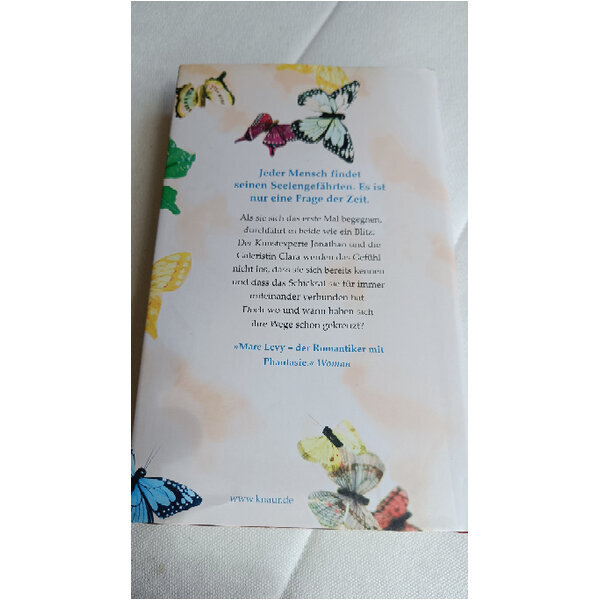 Jeder Mensch findet
seinen Seelengefährten. Es ist
nur eine Frage der Zeit.
Als sie sich das erste Mal begegnen,
durchfährt es beide wie ein Blitz.
Der Kunstexperte Jonathan und die
Galeristin Clara werden das Gefühl
nicht los, dass sie sich bereits kennen
und dass das Schicksal sie für immer
miteinander verbunden hat.
Doch wo und wann haben sich
ihre Wege schon gekreuzt?
»Marc Levy – der Romantiker mit
Phantasie.« Woman
www.knaur.de